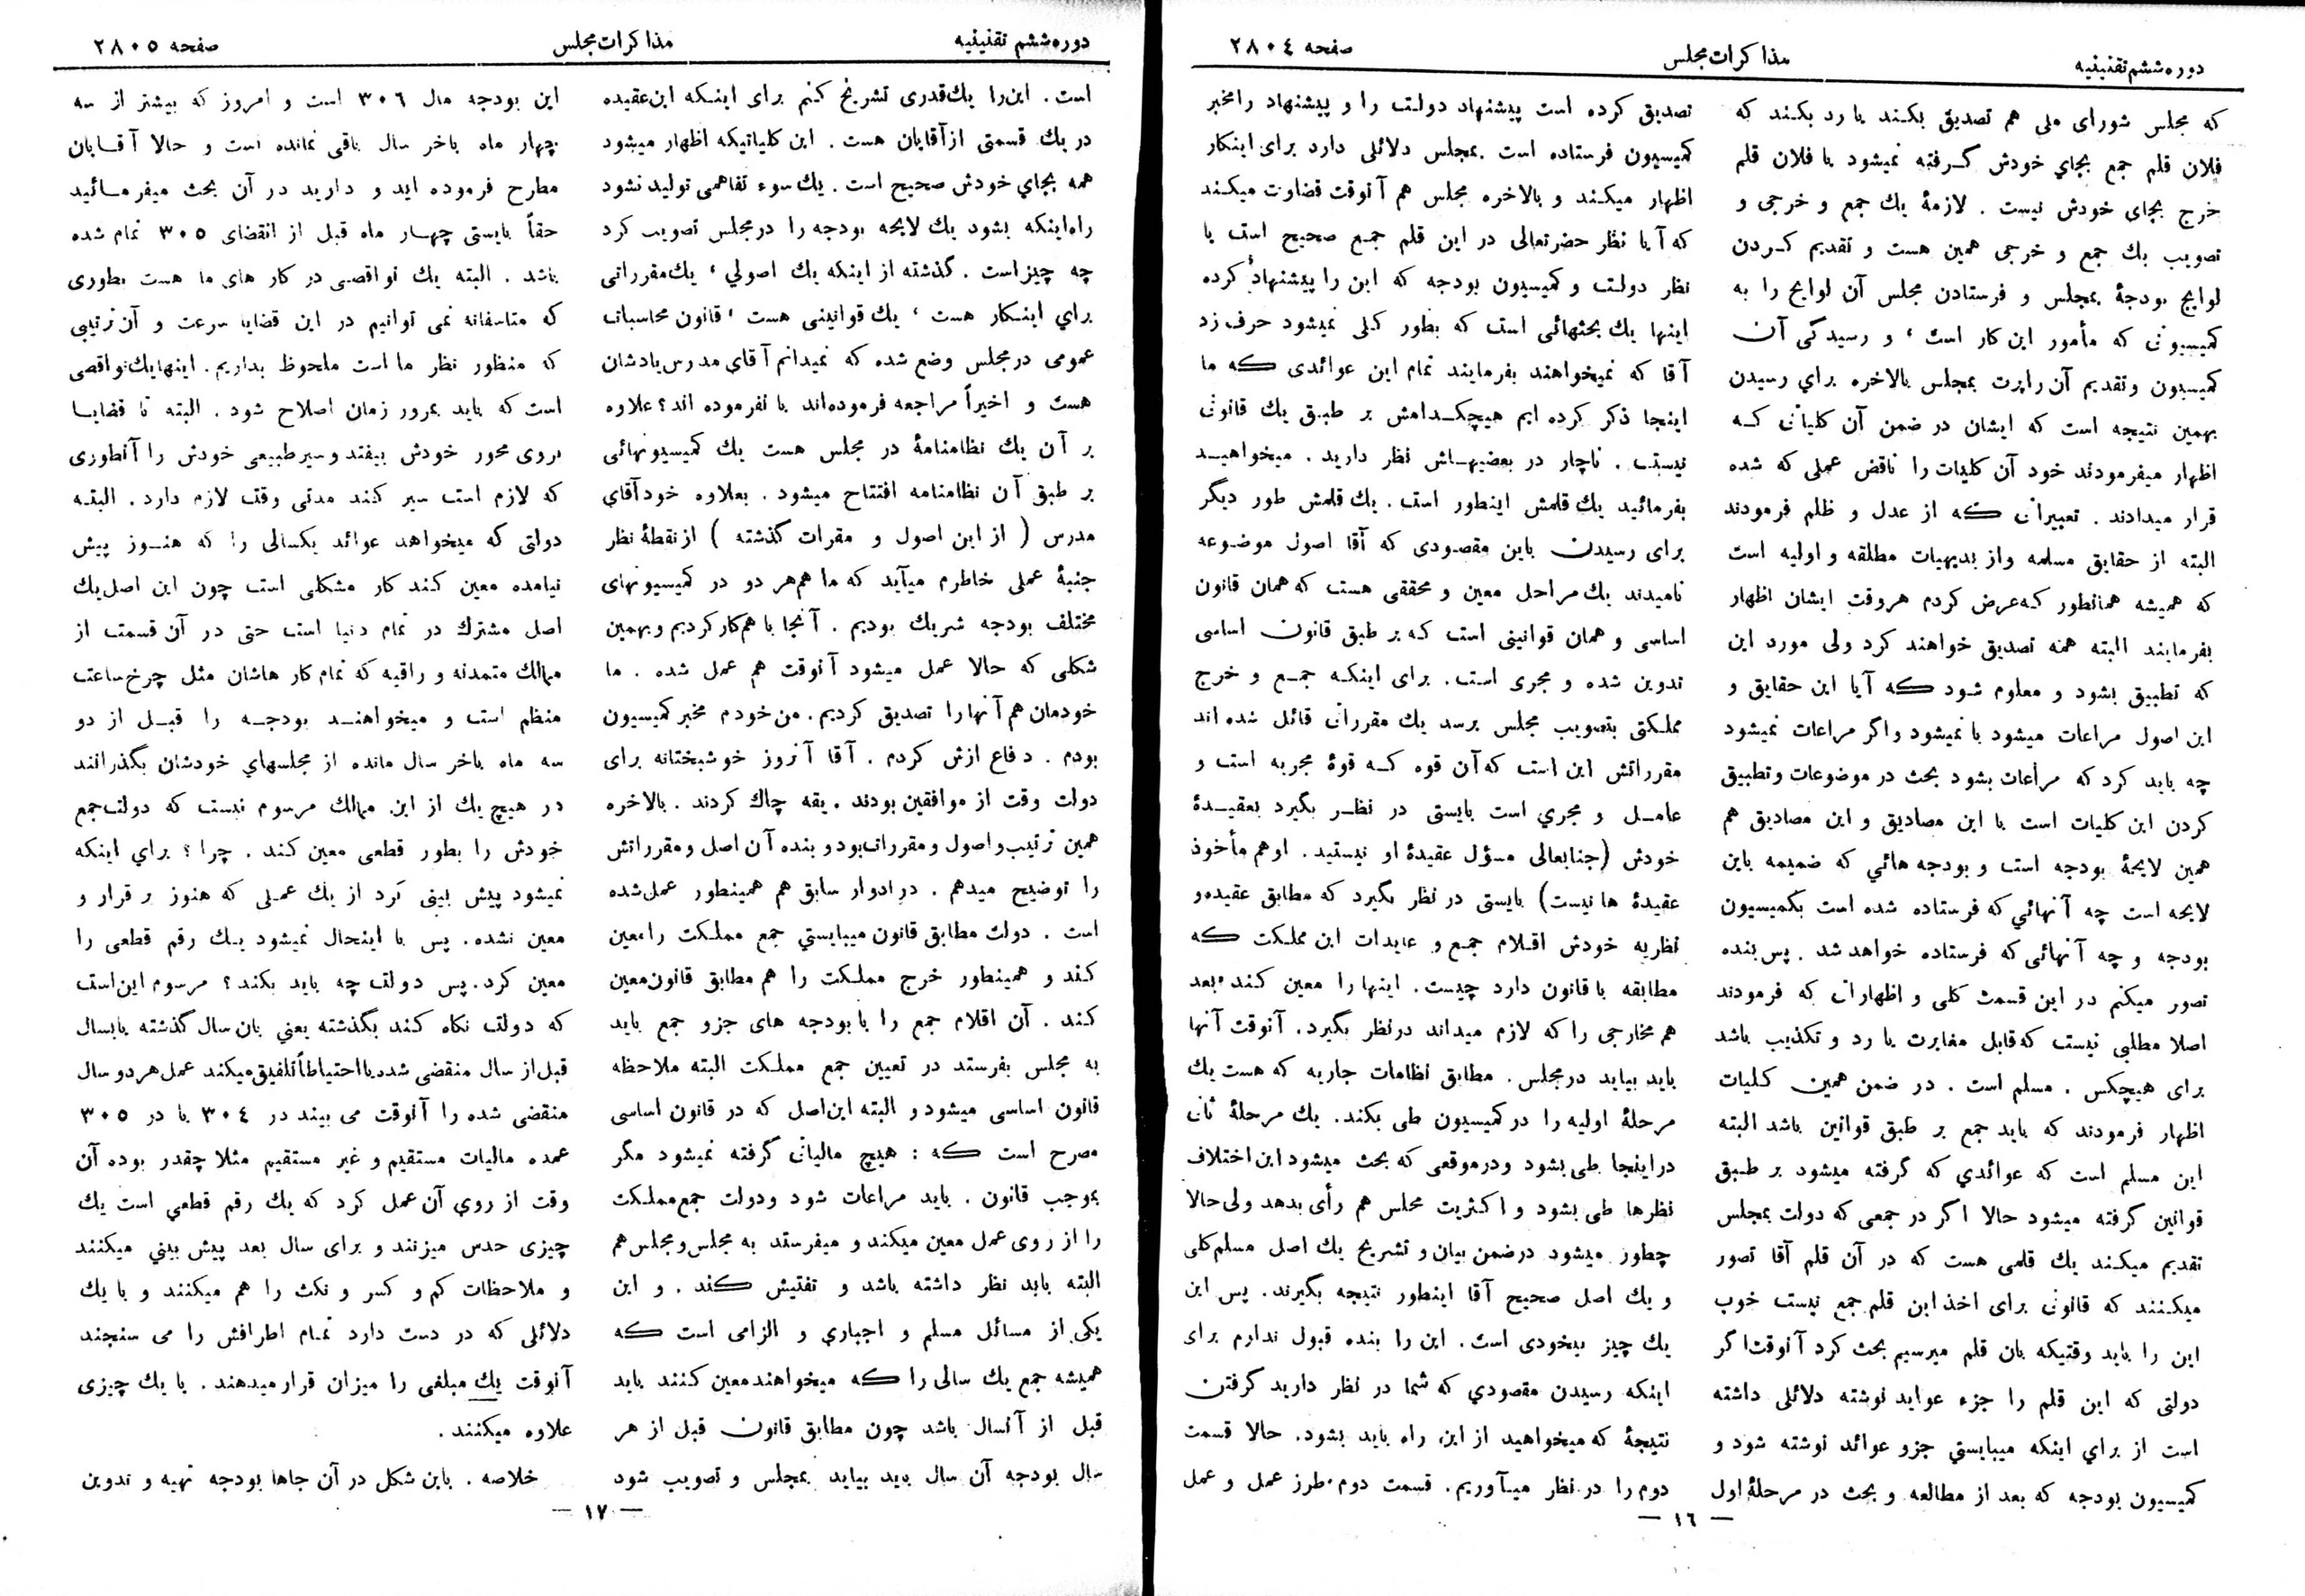 دوره ششم تقنینیه
مذاکرات مجلس
صفحه ۲۸۰۴
که مجلس شورای ملی هم تصدیق بکند یا رد بکند که
فلان قلم جمع بجاي خودش گرفته نمیشود یا فلان قلم
خرج بجای خودش نیست . لازمهٔ یك جمع و خرجی و
تصویب یك جمع و خرجی همین هست و تقدیم کردن
لوایح بودجهٔ بمجلس و فرستادن مجلس آن لوایح را به
کمیسیونی که مأمور این کار است ، و رسیدگی آن
کمیسیون و تقدیم آن راپرت بمجلس بالاخره براي رسیدن
بهمین نتیجه است که ایشان در ضمن آن کلیاتی که
اظهار میفرمودند خود آن کلیات را ناقض عملی که شده
قرار میدادند . تعبیراتی که از عدل و ظلم فرمودند
البته از حقایق مسلمه و از بدیهیات مطلقه و اولیه است
که همیشه همانطور که عرض کردم هر وقت ایشان اظهار
بفرمایند البته همه تصدیق خواهند کرد ولی مورد این
که تطبیق بشود و معلوم شود که آیا این حقایق و
این اصول مراعات میشود یا نمیشود و اگر مراعات نمیشود
چه باید کرد که مراعات بشود بحث در موضوعات و تطبیق
کردن این کلیات است با این مصادیق و این مصادیق هم
همین لایحهٔ بودجه است و بودجه هائي که ضمیمه باین
لایحه است چه آنهائي که فرستاده شده است بکمیسیون
بودجه و چه آنهائی که فرستاده خواهد شد . پس بنده
تصور میکنم در این قسمت کلی و اظهاراتی که فرمودند
اصلا مطلبی نیست که قابل مغایرت یا رد و تکذیب باشد
برای هیچکس . مسلم است . در ضمن همین کلیات
اظهار فرمودند که باید جمع بر طبق قوانین باشد البته
این مسلم است که عوائدي که گرفته میشود بر طبق
قوانین گرفته میشود حالا اگر در جمعی که دولت بمجلس
تقدیم میکند یك قلمی هست که در آن قلم آقا تصور
میکنند که قانونی برای اخذ این قلم جمع نیست خوب
این را باید وقتیکه بان قلم میرسیم بحث کرد آنوقت اگر
دولتی که این قلم را جزء عواید نوشته دلائلی داشته
است از براي اینکه میبایستي جزو عوائد نوشته شود و
کمیسیون بودجه که بعد از مطالعه و بحث در مرحلهٔ اول
تصدیق کرده است پیشنهاد دولت را و پیشنهاد را مخبر
کمیسیون فرستاده است بمجلس دلائلی دارد برای اینکار
اظهار میکند و بالاخره مجلس هم آنوقت قضاوت میکند
که آیا نظر حضرتعالی در این قلم جمع صحیح است یا
نظر دولت و کمیسیون بودجه که این را پیشنهاد کرده
اینها یك بحثهائی است که بطور کلی نمیشود حرف زد
آقا که نمیخواهند بفرمایند تمام این عوائدی که ما
اینجا ذکر کرده ایم هیچکدامش بر طبق یك قانونی
نیست . ناچار در بعضیهاش نظر دارید . میخواهید
بفرمائید یك قلمش اینطور است . یك قلمش طور دیگر
برای رسیدن باین مقصودی که آقا اصول موضوعه
نامیدند یك مراحل معین و محققی هست که همان قانون
اساسی و همان قوانینی است که بر طبق قانون اساسی
تدوین شده و مجری است . برای اینکه جمع و خرج
مملکتی بتصویب مجلس برسد یك مقرراتی قائل شده اند
مقرراتش این است که آن قوه که قوهٔ مجریه است و
عامل و مجري است بایستی در نظر بگیرد بعقیدهٔ
خودش (جنابعالی مسؤل عقیدهٔ او نیستید . او هم مأخوذ
عقیدهٔ ها نیست) بایستی در نظر بگیرد که مطابق عقیده و
نظریه خودش اقلام جمع و عایدات این مملکت که
مطابقه با قانون دارد چیست . اینها را معین کند بعد
هم مخارجی را که لازم میداند در نظر بگیرد . آنوقت آنها
باید بیاید در مجلس . مطابق نظامات جاریه که هست یك
مرحلهٔ اولیه را در کمیسیون طی بکند . یك مرحلهٔ ثانی
در اینجا طی بشود و در موقعی که بحث میشود این اختلاف
نظرها طی بشود و اکثریت مجلس هم رأی بدهد ولی حالا
چطور میشود در ضمن بیان و تشریح یك اصل مسلم کلی
و یك اصل صحیح آقا اینطور نتیجه بگیرند . پس این
یك چیز بیخودی است . این را بنده قبول ندارم برای
اینکه رسیدن مقصودي که شما در نظر دارید گرفتن
نتیجهٔ که میخواهید از این راه باید بشود . حالا قسمت
دوم را در نظر میآوریم . قسمت دوم طرز عمل و عمل
— ١٦ —
دوره ششم تقنینیه
مذاکرات مجلس
صفحه ۲۸۰۵
است . این را یك قدری تشریح کنم برای اینکه این عقیده
در یك قسمتی از آقایان هست . این کلیاتیکه اظهار میشود
همه بجاي خودش صحیح است . یك سوء تفاهمی تولید نشود
راه اینکه بشود یك لایحه بودجه را در مجلس تصویب کرد
چه چیز است . گذشته از اینکه یك اصولي ، یك مقرراتی
براي اینکار هست ، یك قوانینی هست ، قانون محاسبات
عمومی در مجلس وضع شده که نمیدانم آقای مدرس یادشان
هست و اخیراً مراجعه فرموده اند یا نفرموده اند ؟ علاوه
بر آن یك نظامنامهٔ در مجلس هست یك کمیسیونهائی
بر طبق آن نظامنامه افتتاح میشود . بعلاوه خود آقای
مدرس ( از این اصول و مقررات گذشته ) از نقطهٔ نظر
جنبهٔ عملی خاطرم میآید که ما هم هر دو در کمیسیونهای
مختلف بودجه شریك بودیم . آنجا با هم کار کردیم و بهمین
شکلی که حالا عمل میشود آنوقت هم عمل شده . ما
خودمان هم آنها را تصدیق کردیم . من خودم مخبر کمیسیون
بودم . دفاع ازش کردم . آقا آنروز خوشبختانه برای
دولت وقت از موافقین بودند . یقه چاك کردند . بالاخره
همین ترتیب و اصول و مقررات بود و بنده آن اصل و مقرراتش
را توضیح میدهم . در ادوار سابق هم همینطور عمل شده
است . دولت مطابق قانون میبایستي جمع مملکت را معین
کند و همینطور خرج مملکت را هم مطابق قانون معین
کند . آن اقلام جمع را با بودجه های جزو جمع باید
به مجلس بفرستد در تعیین جمع مملکت البته ملاحظه
قانون اساسی میشود و البته این اصل که در قانون اساسی
مصرح است که : هیچ مالیاتی گرفته نمیشود مگر
بموجب قانون . باید مراعات شود و دولت جمع مملکت
را از روی عمل معین میکند و میفرستد به مجلس و مجلس هم
البته باید نظر داشته باشد و تفتیش کند . و این
یکی از مسائل مسلم و اجباري و الزامی است که
همیشه جمع یك سالی را که میخواهند معین کنند باید
قبل از آنسال باشد چون مطابق قانون قبل از هر
سال بودجه آن سال باید بیاید بمجلس و تصویب شود
این بودجه مال ۳۰٦ است و امروز که بیشتر از سه
چهار ماه باخر سال باقی نمانده است و حالا آقایان
مطرح فرموده اید و دارید در آن بحث میفرمائید
حقاً بایستی چهار ماه قبل از انقضای ۳۰۵ تمام شده
باشد . البته یك نواقصی در کار های ما هست بطوری
که متاسفانه نمی توانیم در این قضایا سرعت و آن ترتیبی
که منظور نظر ما است ملحوظ بداریم . اینها یك نواقصی
است که باید بمرور زمان اصلاح شود . البته تا قضایا
بروی محور خودش بیفتد و سیر طبیعی خودش را آنطوری
که لازم است سیر کند مدتی وقت لازم دارد . البته
دولتی که میخواهد عوائد یکسالی را که هنوز پیش
نیامده معین کند کار مشکلی است چون این اصل یك
اصل مشترك در تمام دنیا است حتی در آن قسمت از
ممالك متمدنه و راقیه که تمام کار هاشان مثل چرخ ساعت
منظم است و میخواهند بودجه را قبل از دو
سه ماه باخر سال مانده از مجلسهاي خودشان بگذرانند
در هیچ یك از این ممالك مرسوم نیست که دولت جمع
خودش را بطور قطعی معین کند . چرا ؟ براي اینکه
نمیشود پیش بینی کرد از یك عملی که هنوز بر قرار و
معین نشده . پس با اینحال نمیشود یك رقم قطعی را
معین کرد . پس دولت چه باید بکند ؟ مرسوم این است
که دولت نگاه کند بگذشته یعني بان سال گذشته یا بسال
قبل از سال منقضی شده یا احتیاطاً تلفیق میکند عمل هر دو سال
منقضی شده را آنوقت می بیند در ۳۰٤ یا در ۳۰۵
عمده مالیات مستقیم و غیر مستقیم مثلا چقدر بوده آن
وقت از روي آن عمل کرد که یك رقم قطعي است یك
چیزی حدس میزنند و برای سال بعد پیش بیني میکنند
و ملاحظات کم و کسر و نکث را هم میکنند و با یك
دلائلی که در دست دارد تمام اطرافش را می سنجند
آنوقت یك مبلغی را میزان قرار میدهند . یا یك چیزی
علاوه میکنند .
خلاصه . باین شکل در آن جاها بودجه تهیه و تدوین
— ١٧ —